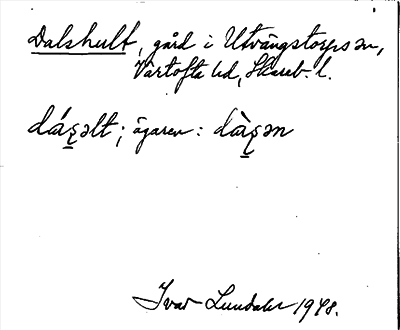 Dalshult, gård i Utvängstorps sn,
Vartofta hd, Skarab. l.
dáʂ̱əlt; ägaren: dàʂ̱ən
Ivar Lundahl 1948.